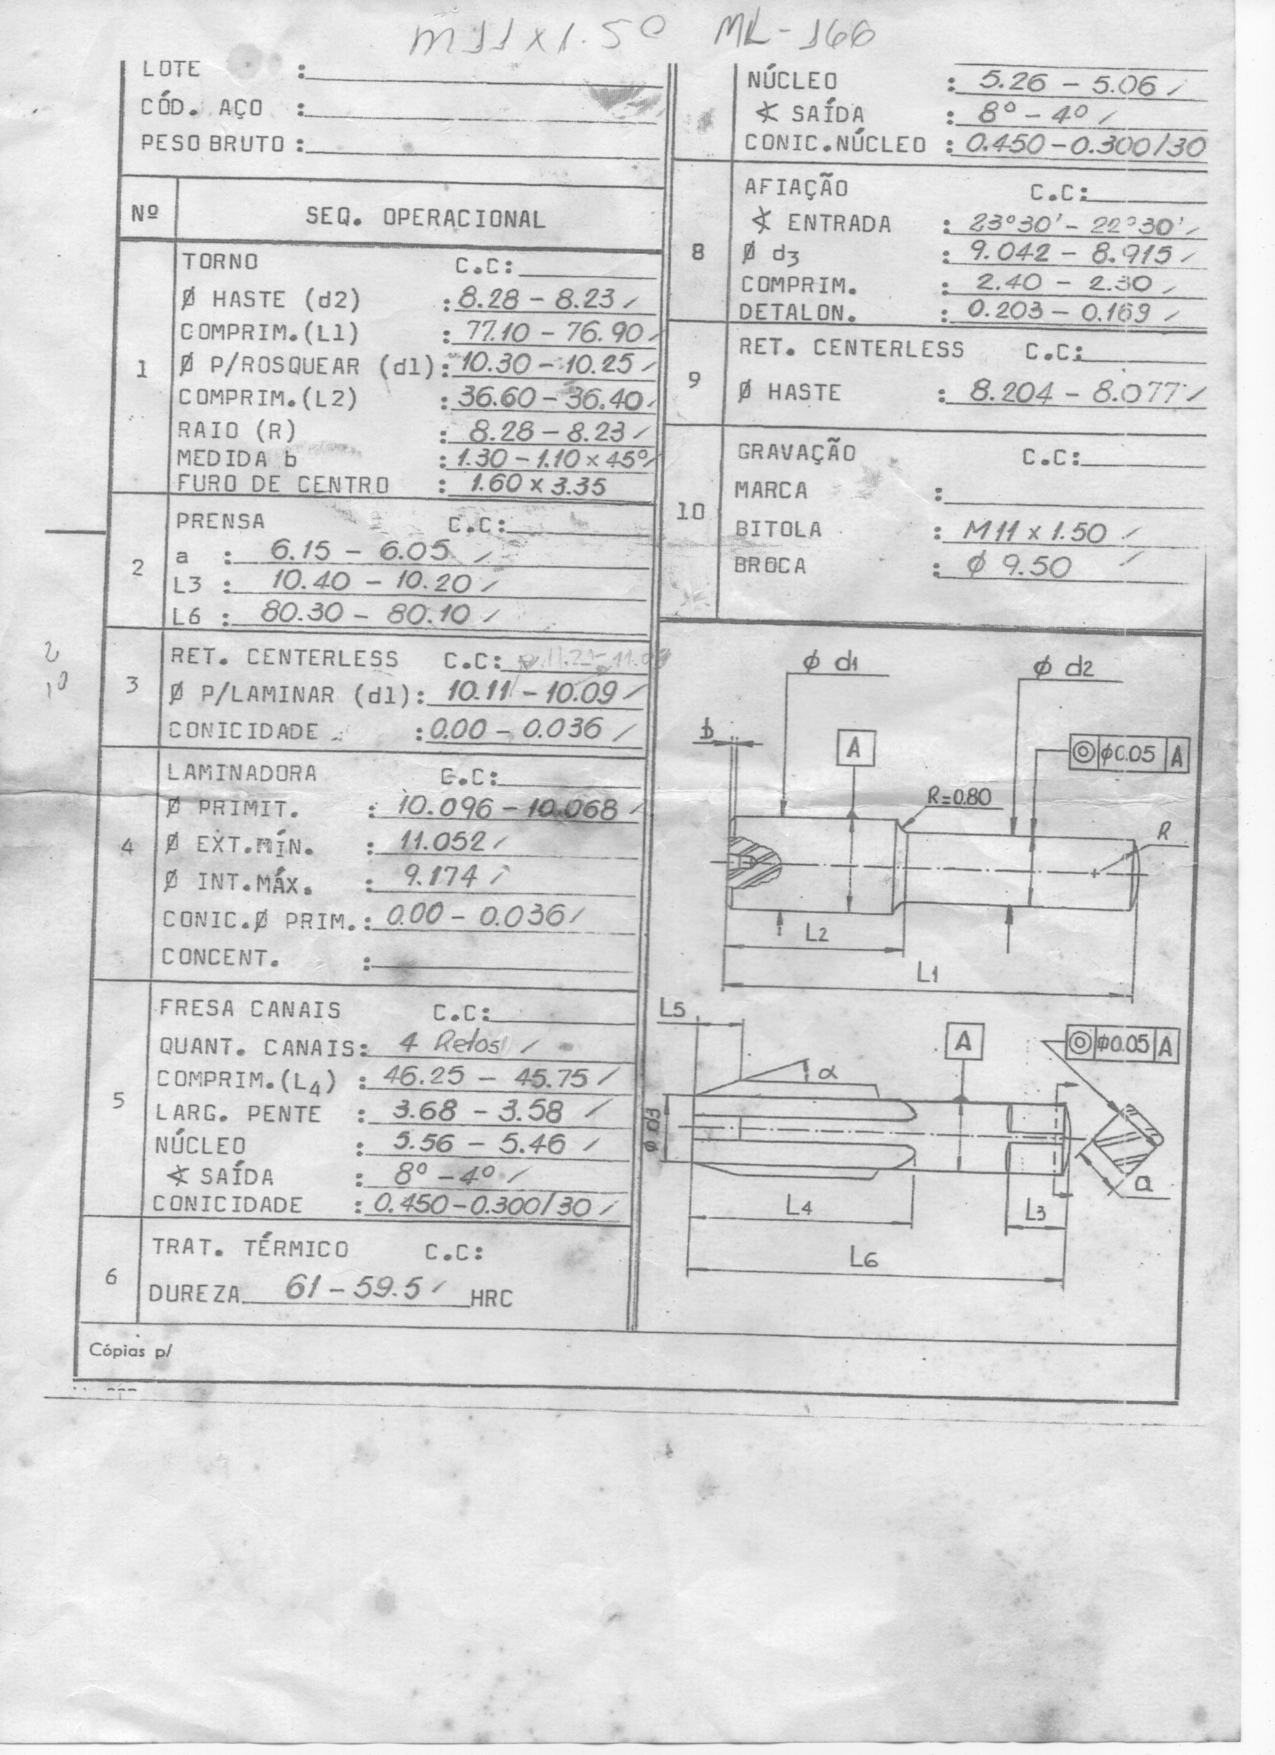 M11x1.50 ML-166
LOTE :
CÓD. AÇO :
PESO BRUTO :
Nº SEQ. OPERACIONAL
1
TORNO C.C:
Ø HASTE (d2) : 8.28 - 8.23
COMPRIM.(L1) : 77.10 - 76.90
Ø P/ROSQUEAR (d1): 10.30 - 10.25
COMPRIM.(L2) : 36.60 - 36.40
RAIO (R) : 8.28 - 8.23
MEDIDA b : 1.30 - 1.10 x 45°
FURO DE CENTRO : 1.60 x 3.35
2
PRENSA C.C:
a : 6.15 - 6.05
L3 : 10.40 - 10.20
L6 : 80.30 - 80.10
3
RET. CENTERLESS C.C:
Ø P/LAMINAR (d1): 10.11 - 10.09
CONICIDADE : 0.00 - 0.036
4
LAMINADORA C.C:
Ø PRIMIT. : 10.096 - 10.068
Ø EXT.MÍN. : 11.052
Ø INT.MÁX. : 9.174
CONIC.Ø PRIM.: 0.00 - 0.036
CONCENT. :
5
FRESA CANAIS C.C:
QUANT. CANAIS: 4 Retos
COMPRIM.(L4) : 46.25 - 45.75
LARG. PENTE : 3.68 - 3.58
NÚCLEO : 5.56 - 5.46
∢ SAÍDA : 8° - 4°
CONICIDADE : 0.450 - 0.300/30
6
TRAT. TÉRMICO C.C:
DUREZA 61 - 59.5 HRC
Cópias p/
NÚCLEO : 5.26 - 5.06
∢ SAÍDA : 8° - 4°
CONIC.NÚCLEO : 0.450 - 0.300/30
8
AFIAÇÃO C.C:
∢ ENTRADA : 23°30' - 22°30'
Ø d3 : 9.042 - 8.915
COMPRIM. : 2.40 - 2.30
DETALON. : 0.203 - 0.169
9
RET. CENTERLESS C.C:
Ø HASTE : 8.204 - 8.077
10
GRAVAÇÃO C.C:
MARCA :
BITOLA : M11 x 1.50
BROCA : Ø 9.50
Ø d1 Ø d2
b A ◎ Ø0.05 A
R=0.80 R
L2
L1
L5
A ◎ Ø0.05 A
α
Ø d3
a
L4 L3
L6